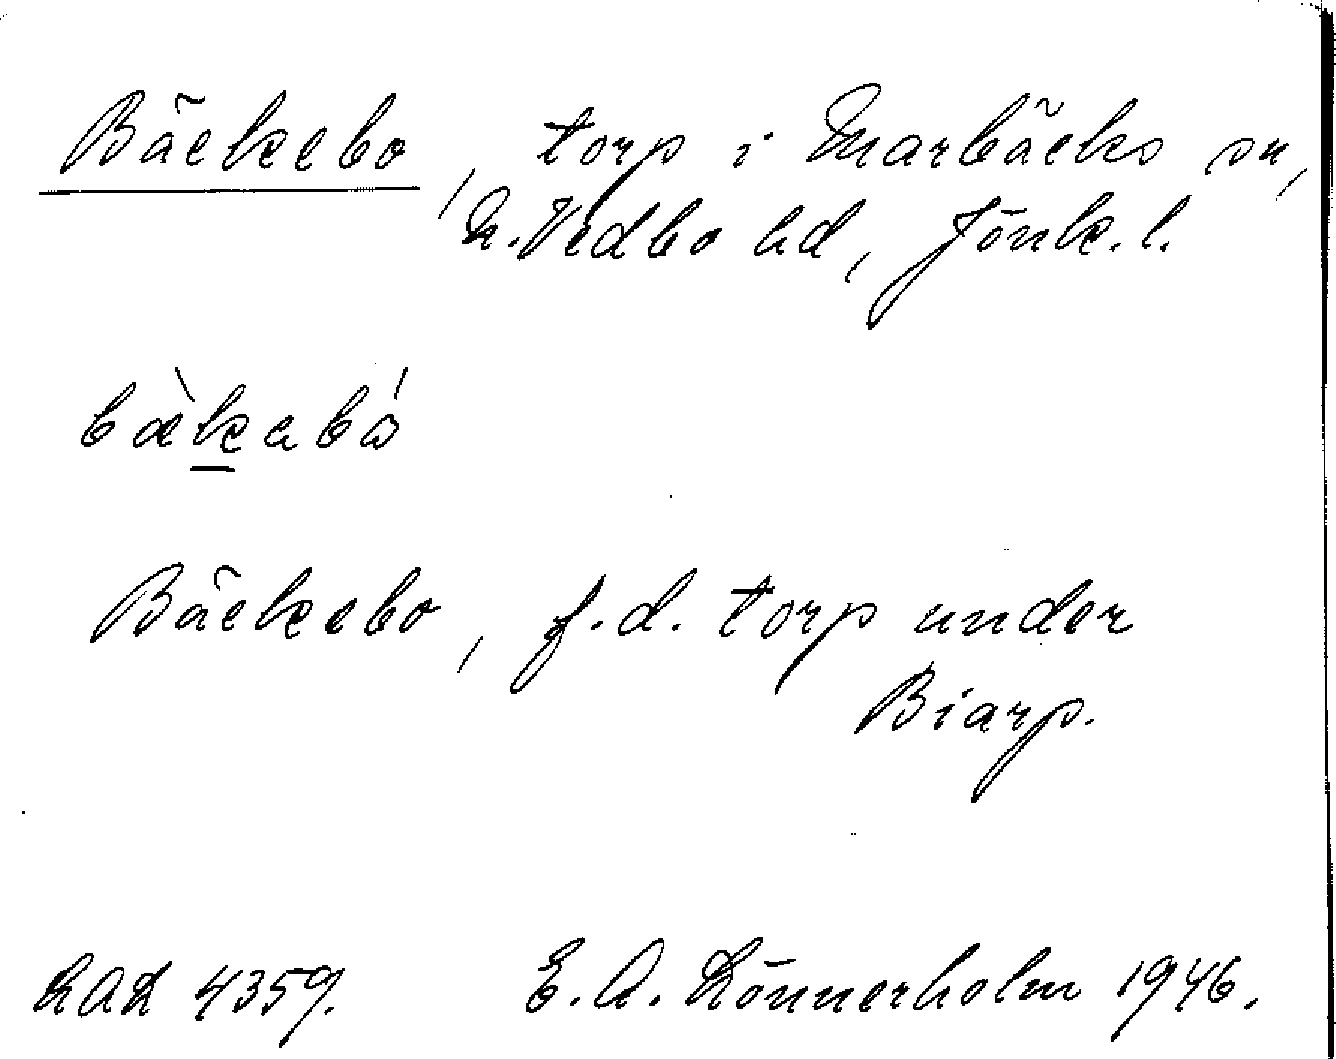 Bäckebo, torp i Marbäcks sn,
N. Vedbo hd, Jönk. l.
bæ̀kabǻ
Bäckebo, f.d. torp under
Biarp.
LAL 4359. E. A. Lönnerholm 1946.